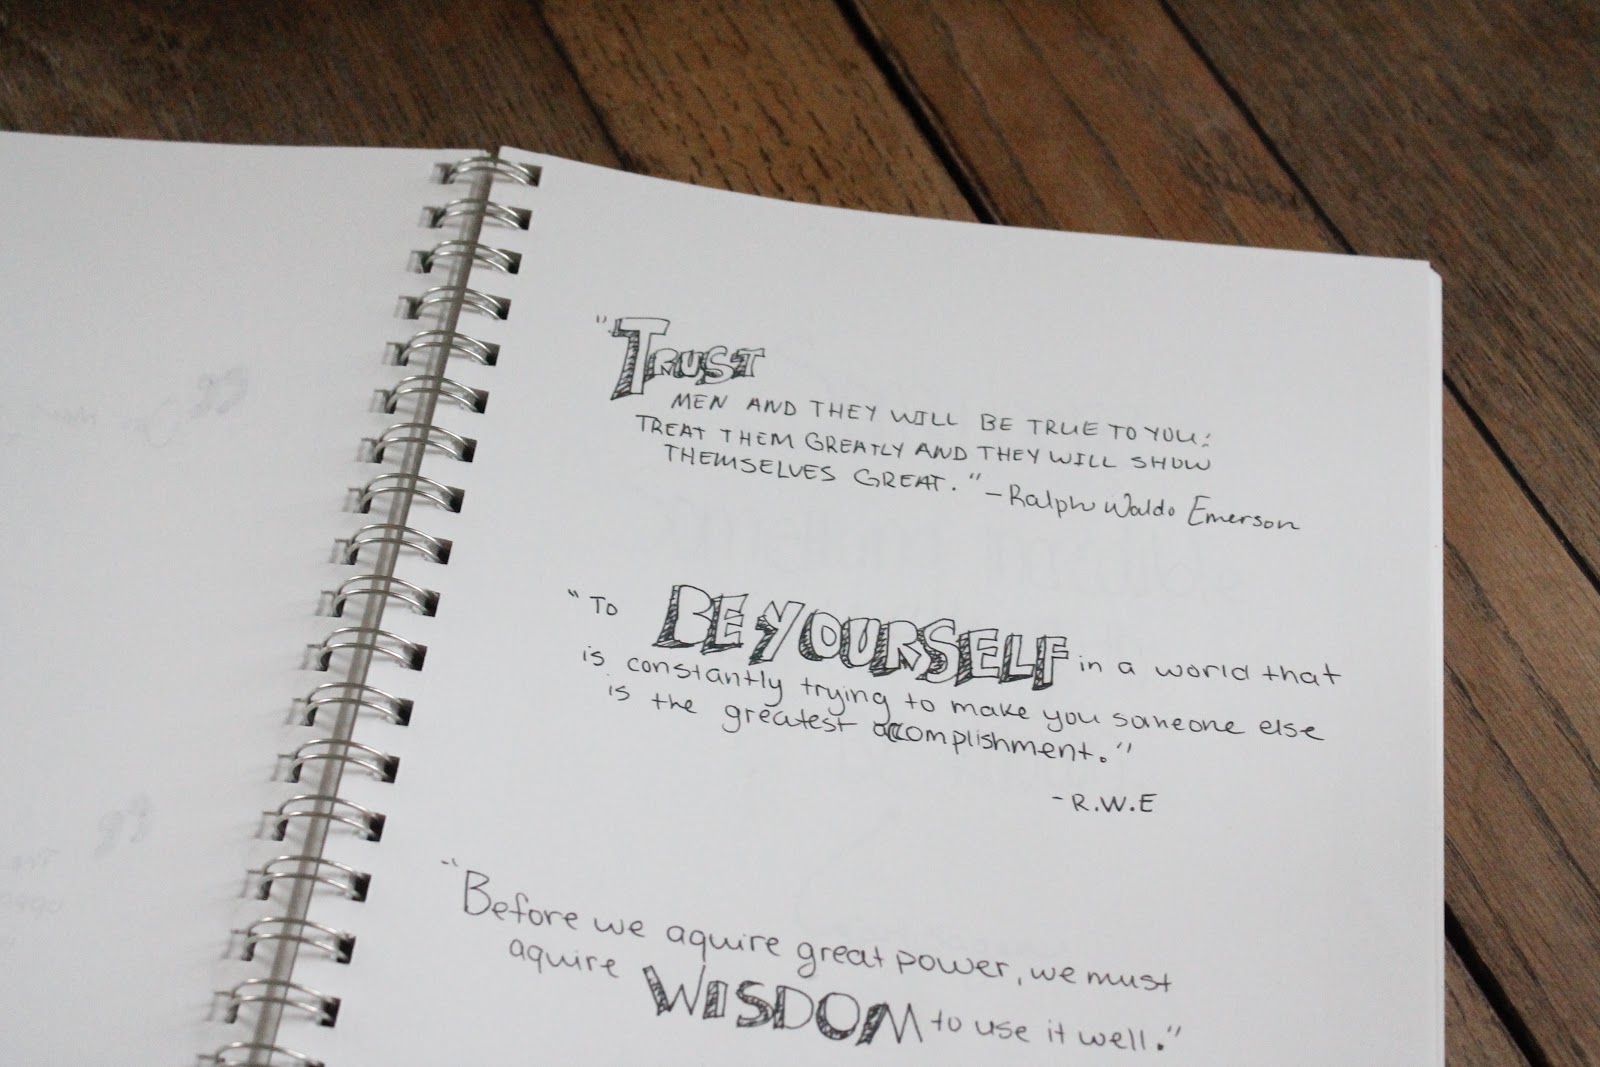 "TRUST
MEN AND THEY WILL BE TRUE TO YOU:
TREAT THEM GREATLY AND THEY WILL SHOW
THEMSELVES GREAT." -Ralph Waldo Emerson
"TO BE YOURSELF in a world that
is constantly trying to make you someone else
is the greatest accomplishment."
-R.W.E
"Before we aquire great power, we must
aquire WISDOM to use it well."